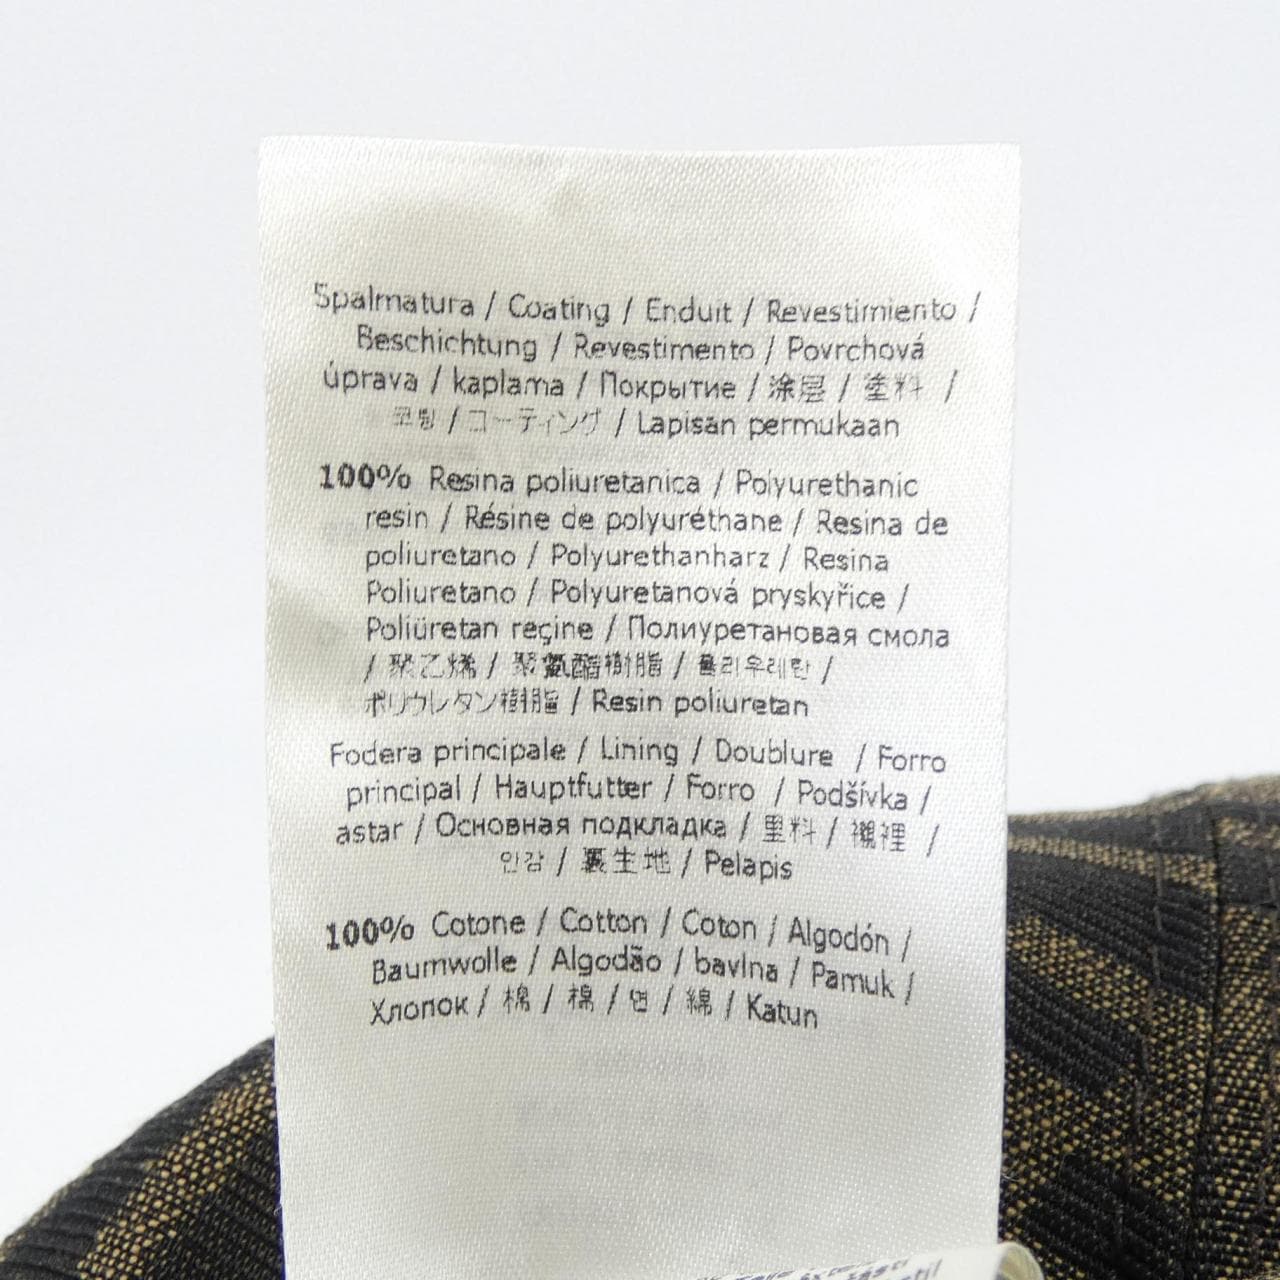 Spalmatura / Coating / Enduit / Revestimiento /
Beschichtung / Revestimento / Povrchová
úprava / kaplama / Покрытие / 涂层 / 塗料 /
코팅 / コーティング / Lapisan permukaan
100% Resina poliuretanica / Polyurethanic
resin / Résine de polyuréthane / Resina de
poliuretano / Polyurethanharz / Resina
Poliuretano / Polyuretanová pryskyřice /
Poliüretan reçine / Полиуретановая смола
/ 聚乙烯 / 聚氨酯樹脂 / 폴리우레탄 /
ポリウレタン樹脂 / Resin poliuretan
Fodera principale / Lining / Doublure / Forro
principal / Hauptfutter / Forro / Podšívka /
astar / Основная подкладка / 里料 / 襯裡 /
안감 / 裏生地 / Pelapis
100% Cotone / Cotton / Coton / Algodón /
Baumwolle / Algodão / bavlna / Pamuk /
Хлопок / 棉 / 棉 / 면 / 綿 / Katun